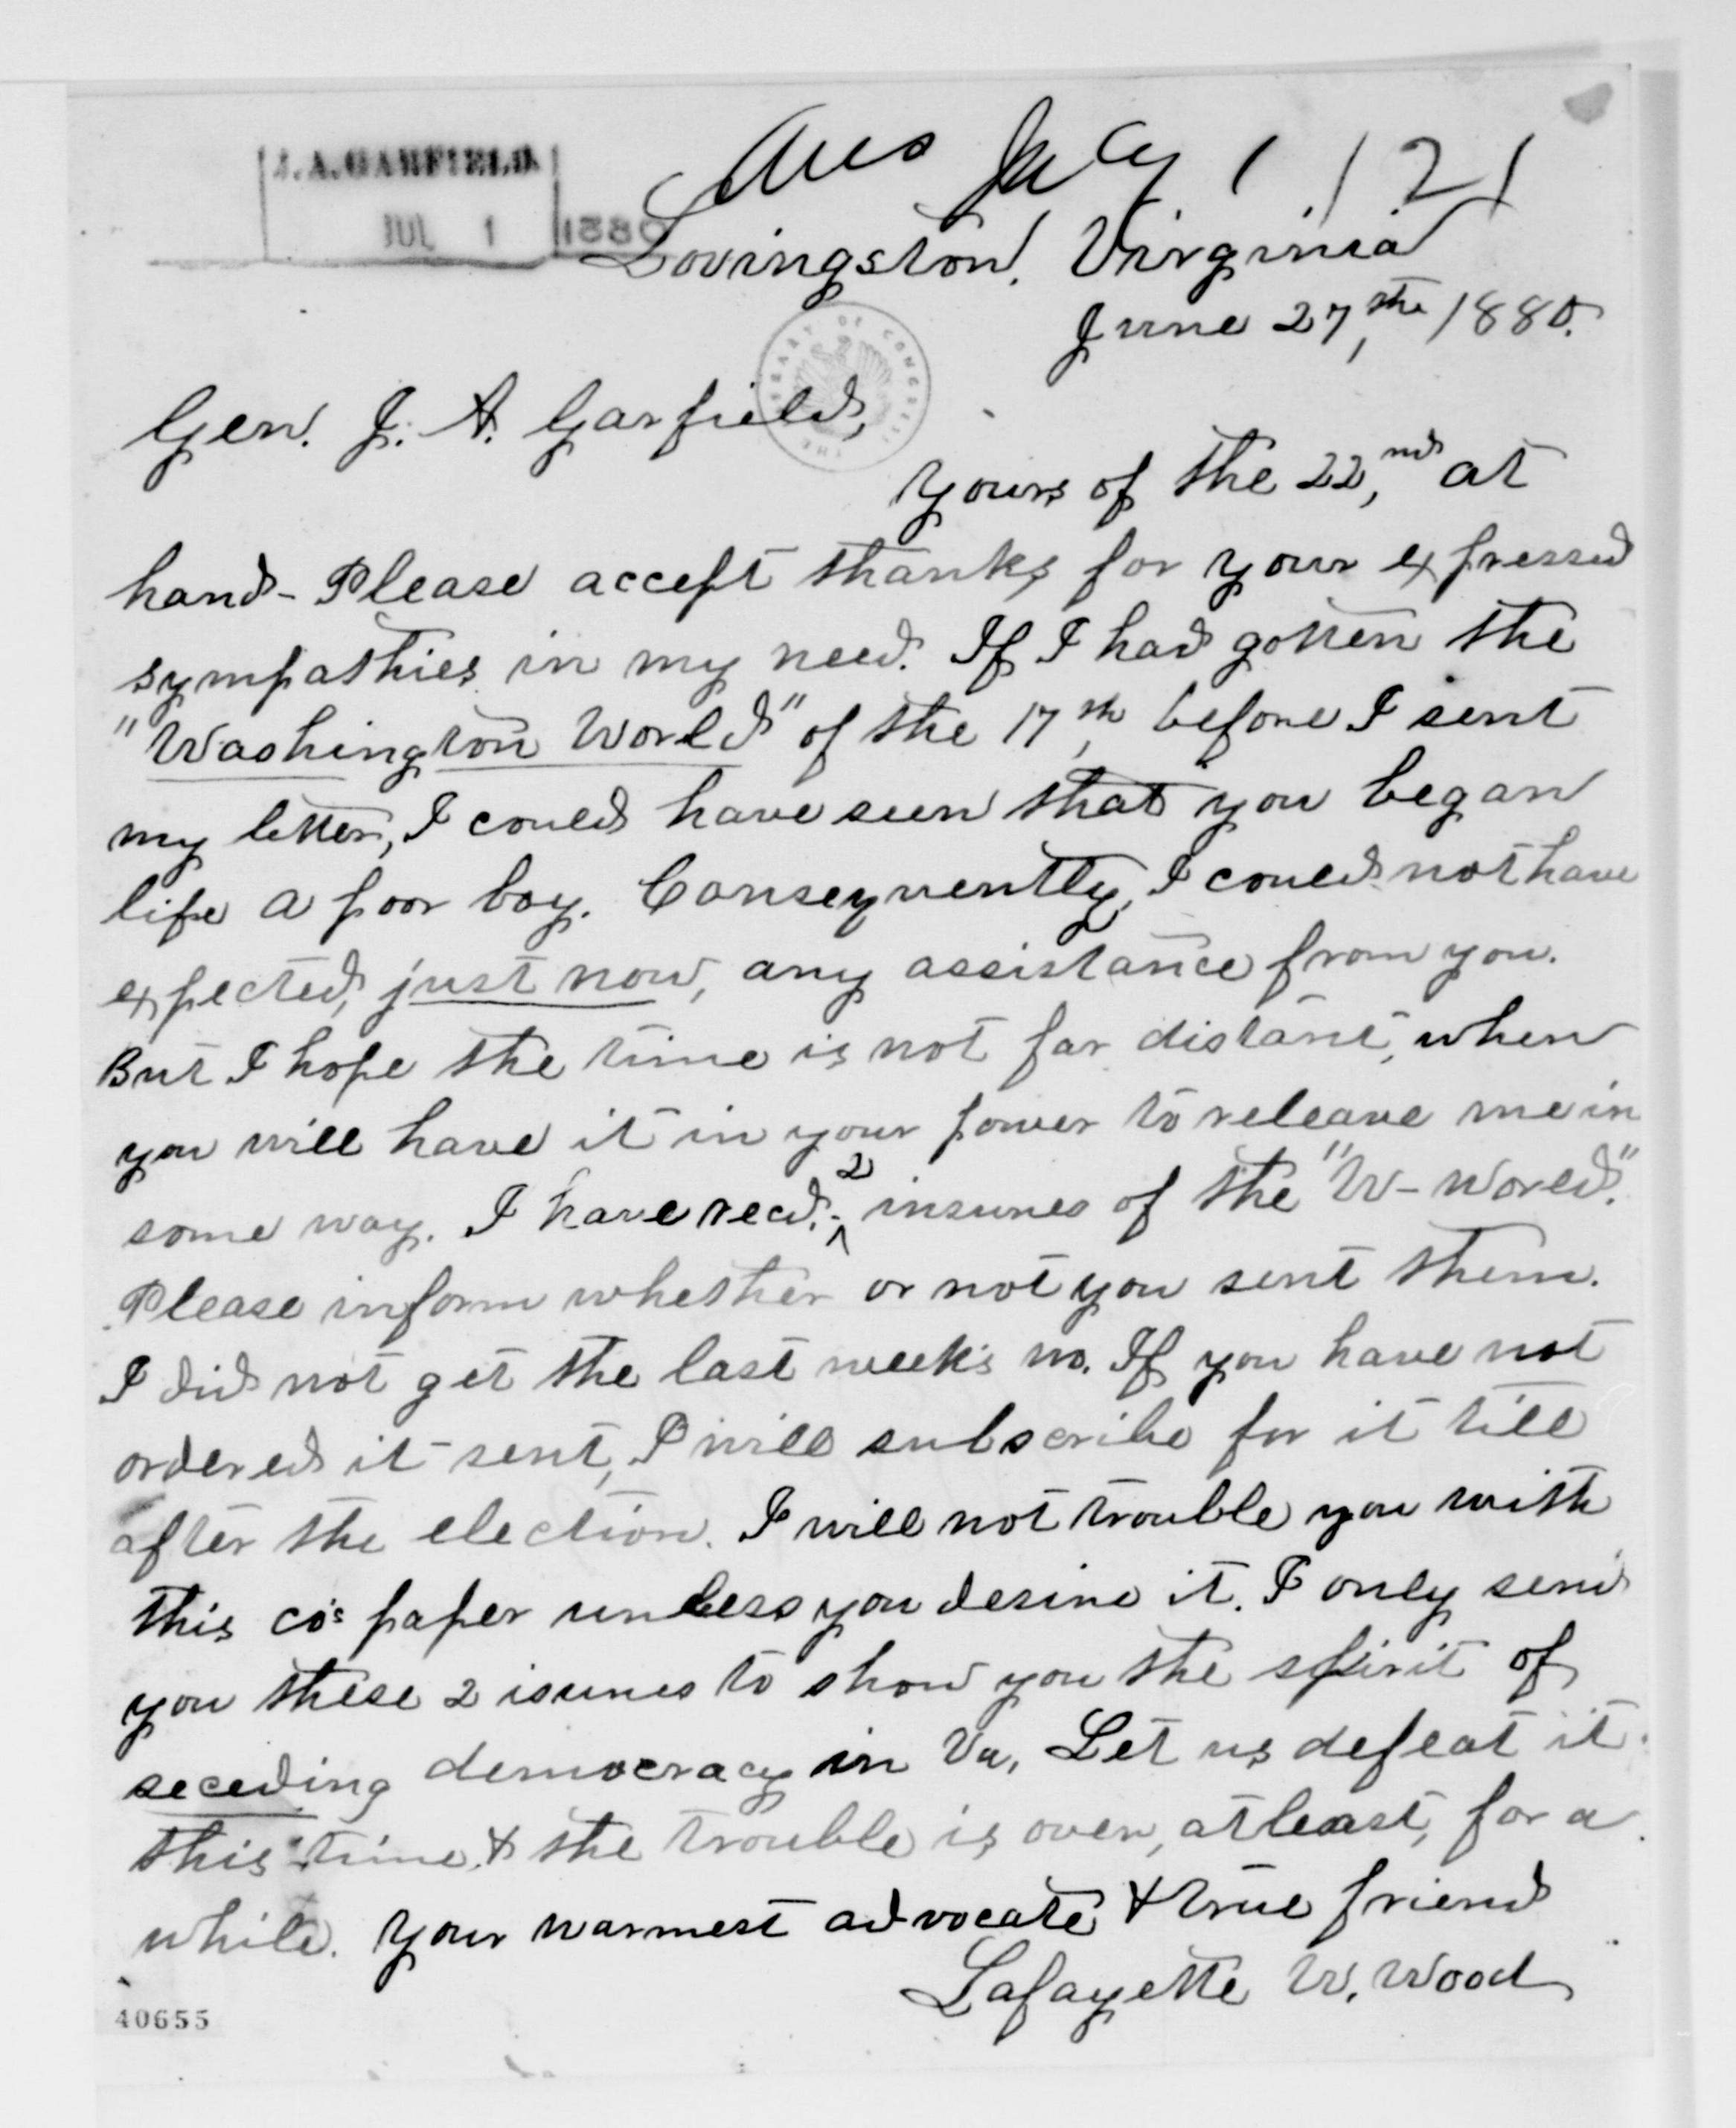 J. A. GARFIELD.
JUL 1 1880
Ans July 1 / 21
Lovingston, Virginia
June 27,th 1880.
THE LIBRARY OF CONGRESS
Gen. J. A. Garfield,
Yours of the 22,nd at
hand - Please accept thanks for your expressed
sympathies in my need. If I had gotten the
"Washington World" of the 17,th before I sent
my letter, I could have seen that you began
life a poor boy. Consequently, I could not have
expected, just now, any assistance from you.
But I hope the time is not far distant, when
you will have it in your power to releave me in
some way. I have recd. 2 insunes of the "W- World."
Please inform whether or not you sent them.
I did not get the last week's no. If you have not
ordered it sent, I will subscribe for it till
after the election. I will not trouble you with
this co's paper unless you desire it. I only send
you these 2 isunes to show you the spirit of
seceding democracy in Va. Let us defeat it
this time & the trouble is over, atleast, for a
while. Your warmest advocate & true friend
Lafayette W. Wood
40655